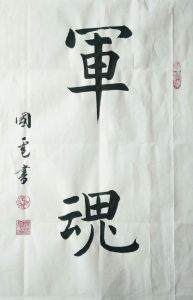 軍魂
國亮書